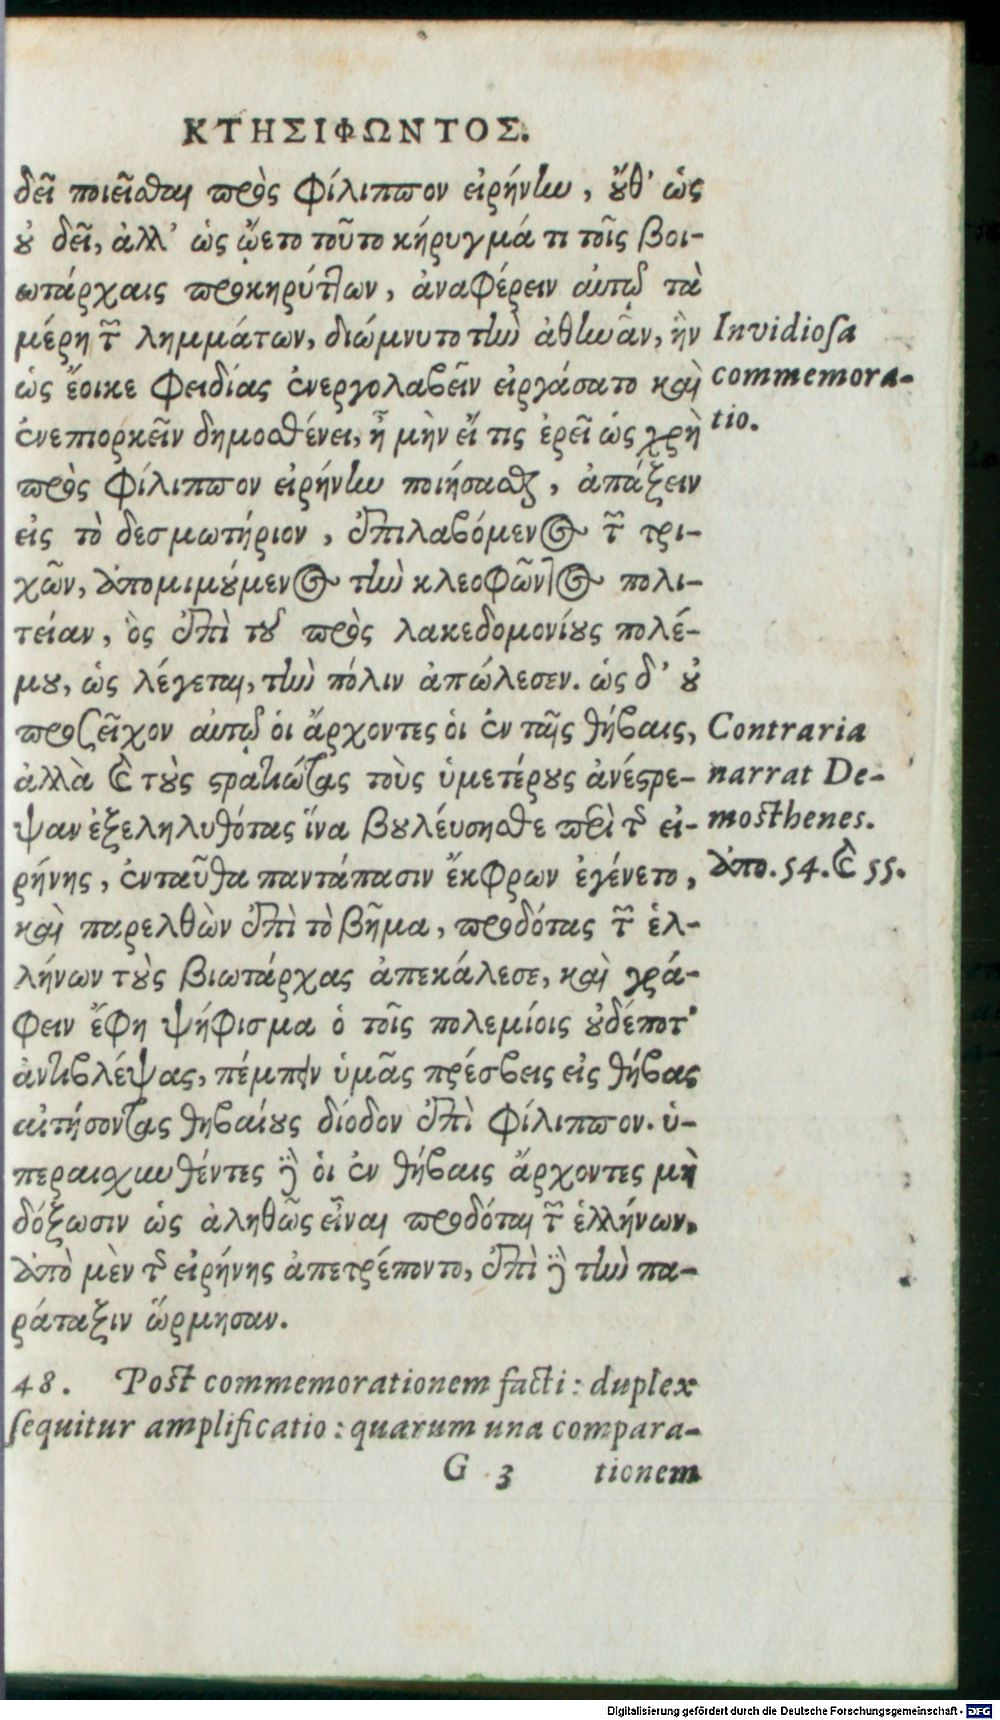 ΚΤΗΣΙΦΩΝΤΟΣ.
δεῖ ποιεῖσθαι πρὸς Φίλιππον εἰρήνην, οὔθ' ὡς
οὐ δεῖ, ἀλλ' ὡς ᾤετο τοῦτο κήρυγμά τι τοῖς βοι-
ωτάρχαις προκηρύττων, ἀναφέρειν αὐτῷ τὰ
μέρη τῶν λημμάτων, διώμνυτο τὴν ἀθηνᾶν, ἣν
ὡς ἔοικε Φειδίας ἐνεργολαβεῖν εἰργάσατο καὶ
ἐνεπιορκεῖν δημοσθένει, ἦ μὴν εἴ τις ἐρεῖ ὡς χρὴ
πρὸς Φίλιππον εἰρήνην ποιήσασθαι, ἀπάξειν
εἰς τὸ δεσμωτήριον, ἐπιλαβόμενος τῶν τρι-
χῶν, ἀπομιμούμενος τὴν κλεοφῶντος πολι-
τείαν, ὃς ἐπὶ τοῦ πρὸς λακεδομονίους πολέ-
μου, ὡς λέγεται, τὴν πόλιν ἀπώλεσεν. ὡς δ' οὐ
προσεῖχον αὐτῷ οἱ ἄρχοντες οἱ ἐν ταῖς θήβαις,
ἀλλὰ καὶ τοὺς στρατιώτας τοὺς ὑμετέρους ἀνέστρε-
ψαν ἐξεληλυθότας ἵνα βουλεύσησθε περὶ τῆς εἰ-
ρήνης, ἐνταῦθα παντάπασιν ἔκφρων ἐγένετο,
καὶ παρελθὼν ἐπὶ τὸ βῆμα, προδότας τῶν ἑλ-
λήνων τοὺς βιωτάρχας ἀπεκάλεσε, καὶ γρά-
φειν ἔφη ψήφισμα ὁ τοῖς πολεμίοις οὐδέποτ'
ἀντιβλέψας, πέμπειν ὑμᾶς πρέσβεις εἰς θήβας
αἰτήσοντας θηβαίους δίοδον ἐπὶ Φίλιππον. ὑ-
περαισχυνθέντες δὲ οἱ ἐν θήβαις ἄρχοντες μὴ
δόξωσιν ὡς ἀληθῶς εἶναι προδόται τῶν ἑλλήνων.
ἀπὸ μὲν τῆς εἰρήνης ἀπετρέποντο, ἐπὶ δὲ τὴν πα-
ράταξιν ὥρμησαν.
Invidiosa
commemora-
tio.
Contraria
narrat De-
mosthenes.
ἀπο. 54. καὶ 55.
48. Post commemorationem facti: duplex
sequitur amplificatio: quarum una compara-
G 3 tionem
Digitalisierung gefördert durch die Deutsche Forschungsgemeinschaft - DFG